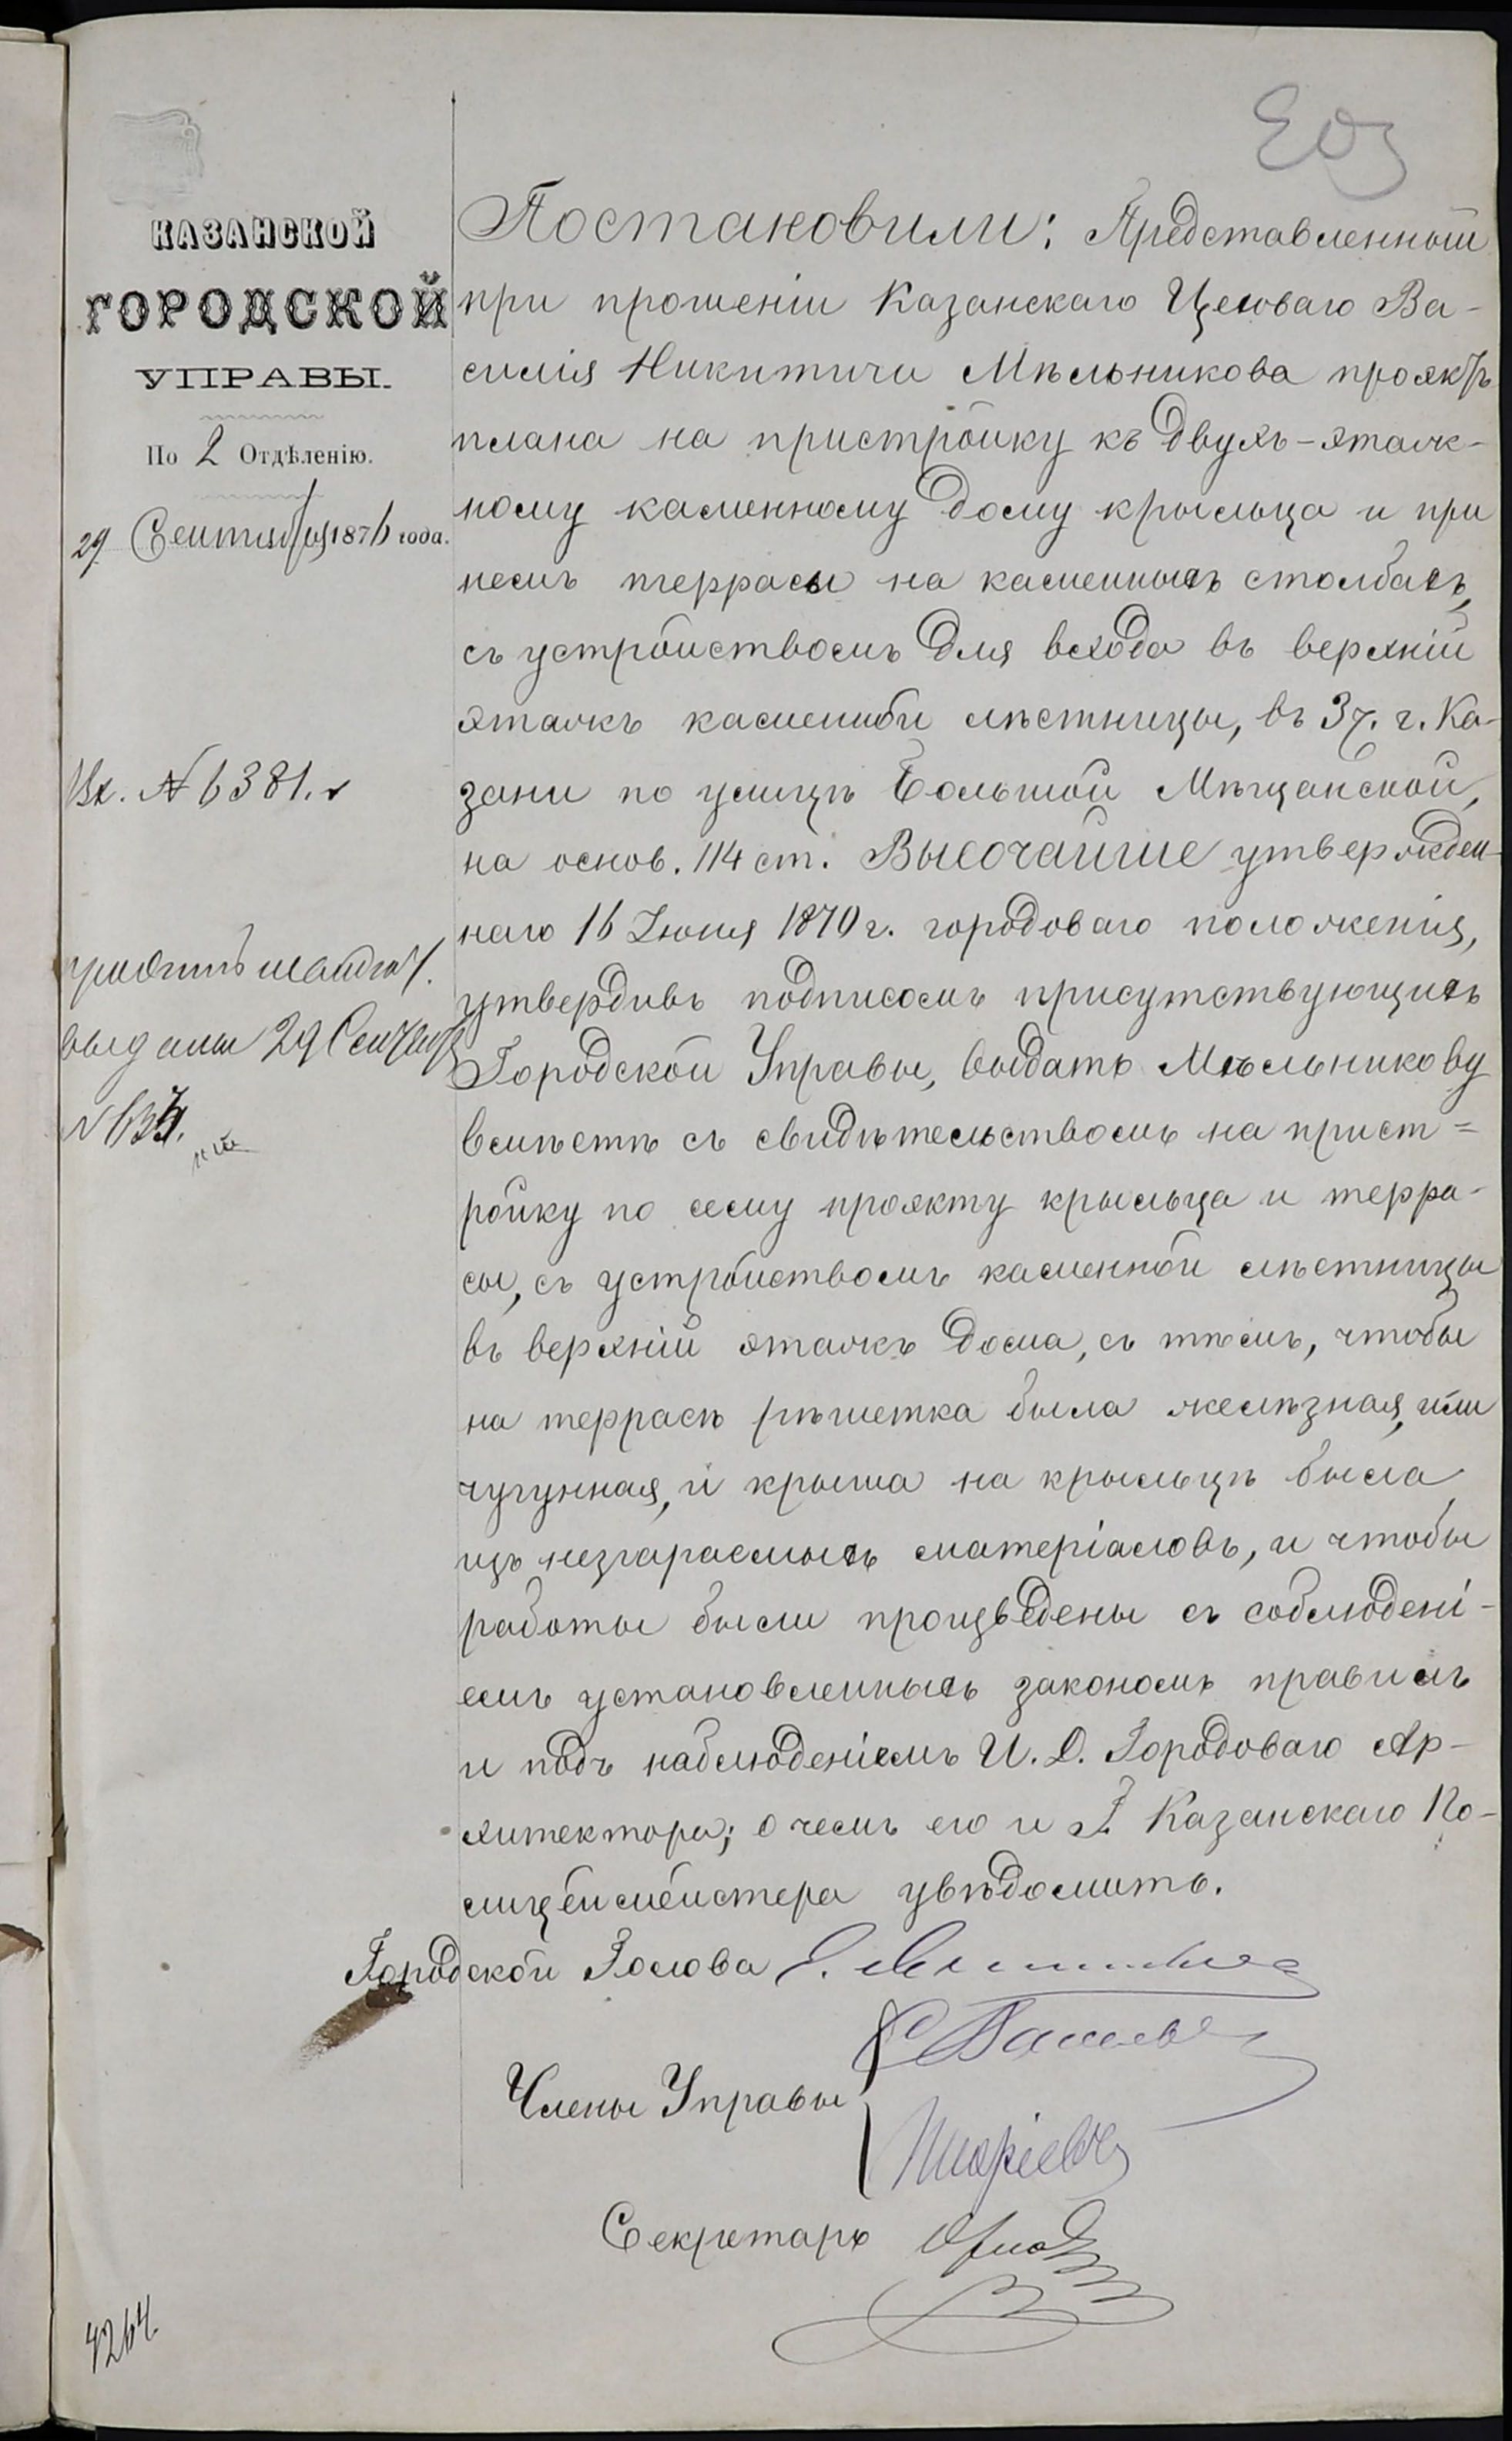 КАЗАНСКОЙ
ГОРОДСКОЙ
УПРАВЫ.
По 2 Отдѣленію.
29 Сентября 1876 года.
Вх. № 6381.
выданы 29 Сентября
Постановили: Представленный
при прошеніи Казанскаго Цеховаго Ва-
силія Никитича Мѣльникова проэктъ
плана на пристройку къ двухъ-этаж-
ному каменному дому крыльца и при
немъ террасы на каменныхъ столбахъ,
съ устройствомъ для входа въ верхній
этажъ каменной лѣстницы, въ 3 ч. г. Ка-
зани по улицѣ Большой Мѣщанской,
на основ. 114 ст. Высочайше утвержден-
наго 16 Іюня 1870 г. городоваго положенія,
утвердивъ подписомъ присутствующихъ
Городской Управы, выдать Мѣльникову
вмѣстѣ съ свидѣтельствомъ на прист=
ройку по сему проэкту крыльца и терра-
сы, съ устройствомъ каменной лѣстницы
въ верхній этажъ дома, съ тѣмъ, чтобы
на террасѣ рѣшетка была желѣзная, или
чугунная, и крыша на крыльцѣ была
изъ незгараемыхъ матеріаловъ, и чтобы
работы были произведены съ соблюдені-
емъ установленныхъ закономъ правилъ
и подъ наблюденіемъ И. Д. Городоваго Ар-
хитектора; о чемъ его и Г. Казанскаго По-
лицеймейстера увѣдомить.
Городской Голова
Члены Управы
Секретарь
4264